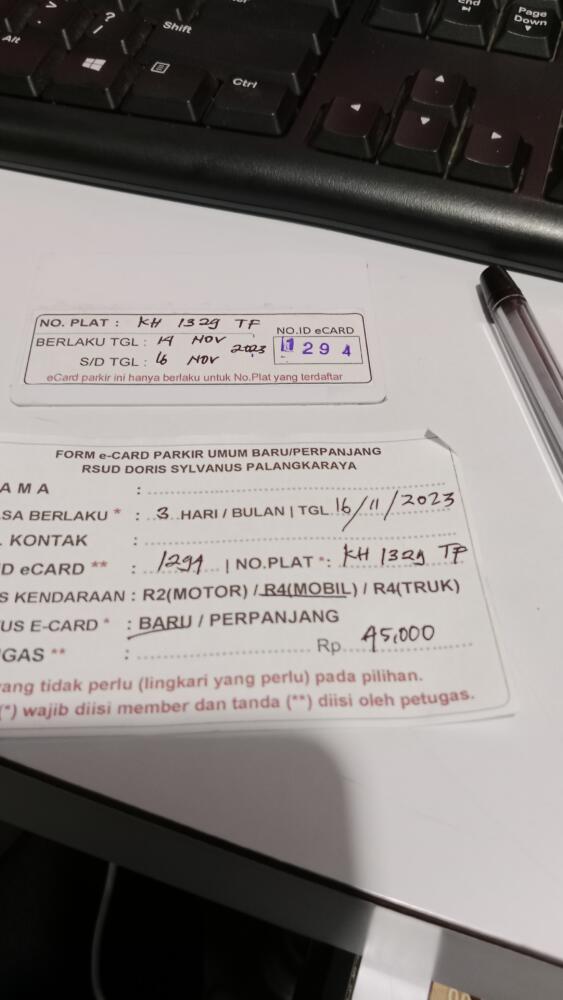 End
Page
Down
?
/
Shift
Alt
Ctrl
NO. PLAT : KH 1329 TF
BERLAKU TGL : 14 NOV 2023
S/D TGL : 16 NOV
NO.ID eCARD
1294
eCard parkir ini hanya berlaku untuk No.Plat yang terdaftar
FORM e-CARD PARKIR UMUM BARU/PERPANJANG
RSUD DORIS SYLVANUS PALANGKARAYA
AMA :
SA BERLAKU * : 3 HARI / BULAN | TGL 16/11/2023
. KONTAK :
D eCARD ** : 1294 | NO.PLAT *: KH 1329 TF
S KENDARAAN : R2(MOTOR) / R4(MOBIL) / R4(TRUK)
US E-CARD * : BARU / PERPANJANG
GAS ** : Rp. 45,000
ang tidak perlu (lingkari yang perlu) pada pilihan.
(*) wajib diisi member dan tanda (**) diisi oleh petugas.